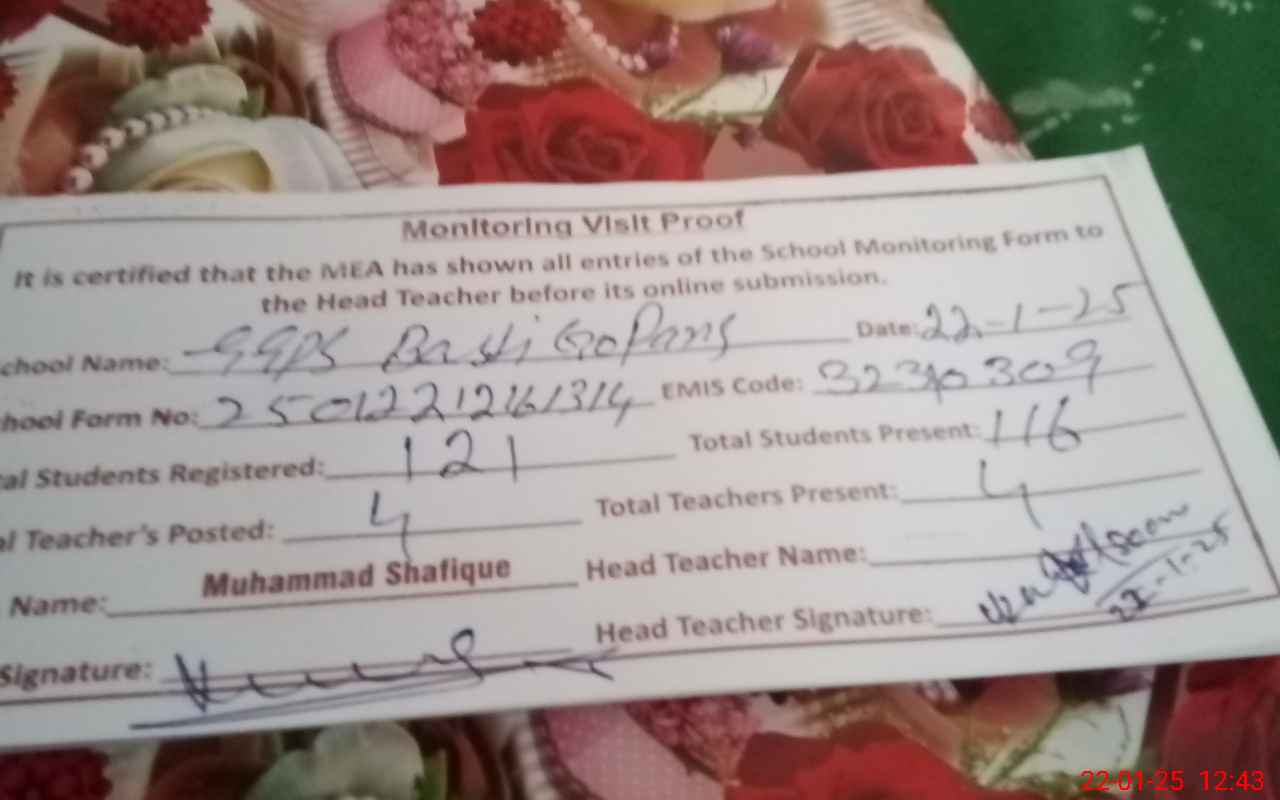 Monitoring Visit Proof
It is certified that the MEA has shown all entries of the School Monitoring Form to
the Head Teacher before its online submission.
chool Name: GGPS Basti Gopang Date: 22-1-25
hool Form No: EMIS Code:
al Students Registered: 121 Total Students Present: 116
al Teacher's Posted: 4 Total Teachers Present: 4
Name: Muhammad Shafique Head Teacher Name:
Signature: Head Teacher Signature:
22-1-25
22-01-25 12:43